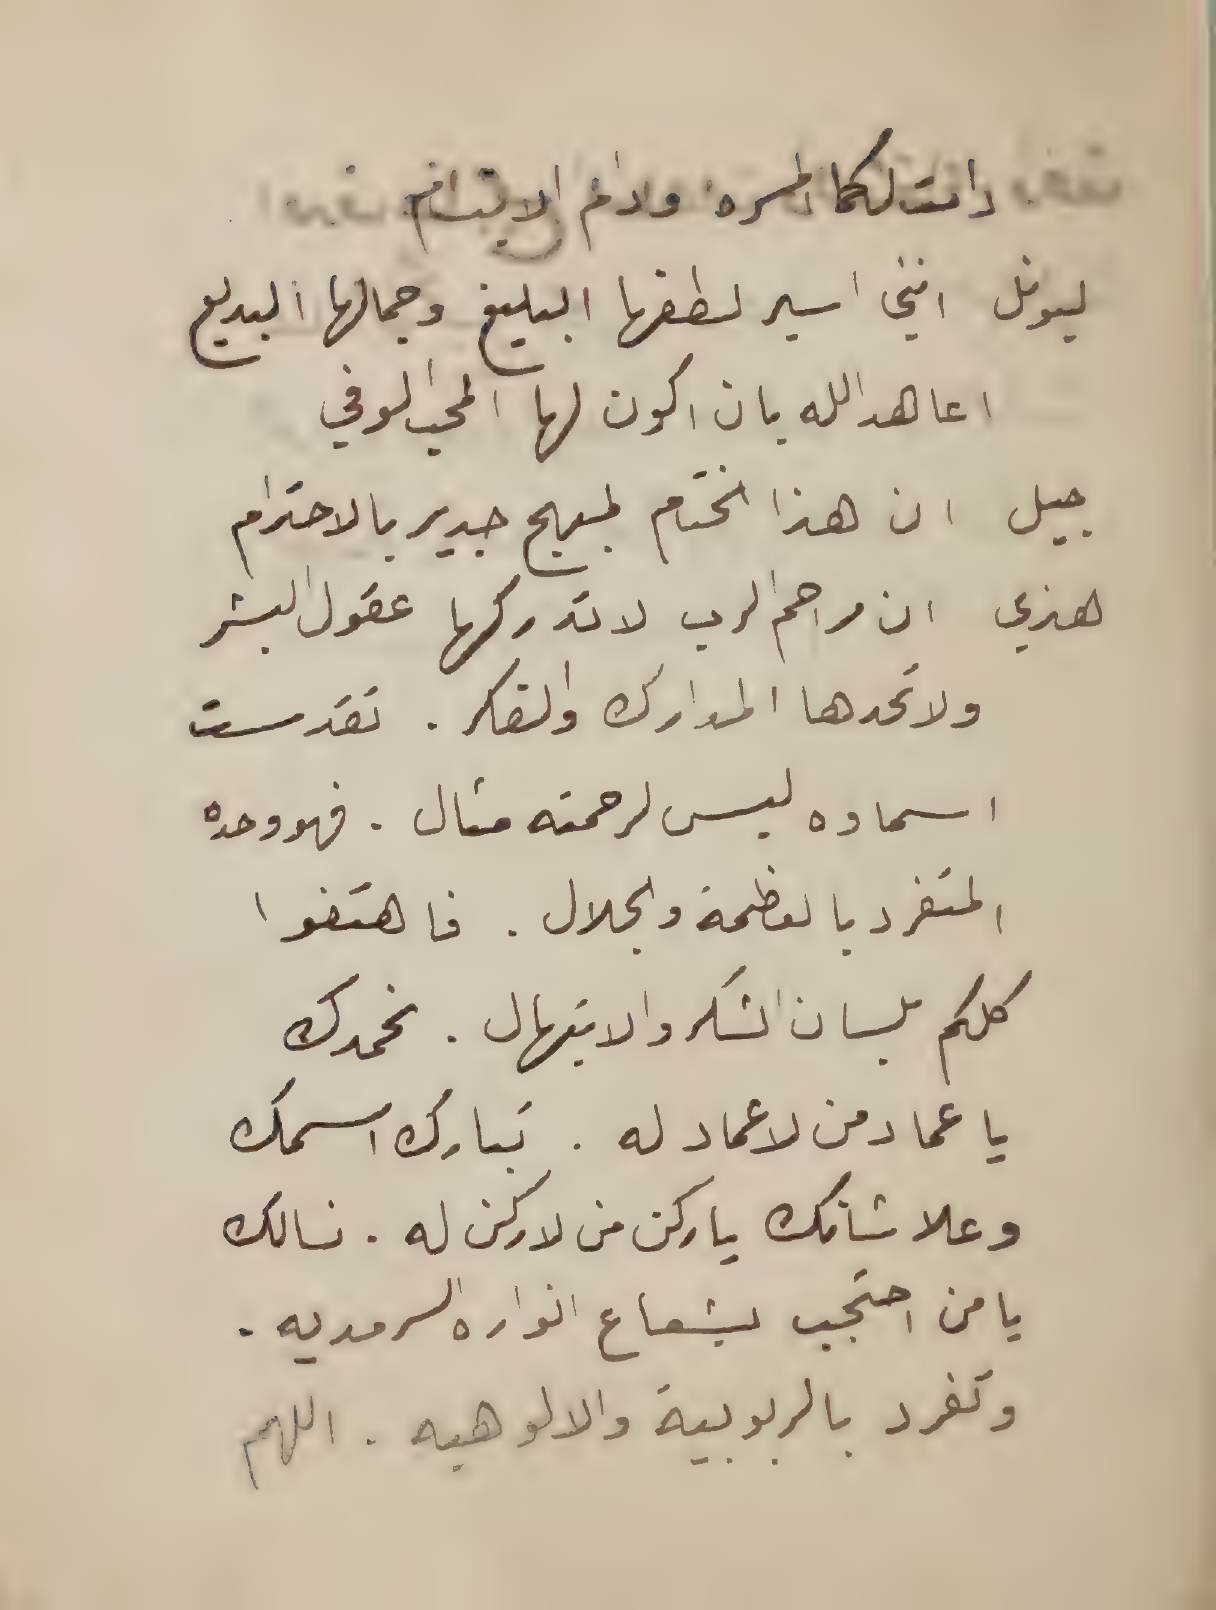 دامت لكما المسره ودام الابتسام
ليونل انني اسير لطفها البليغ وجمالها البديع
اعاهد الله بان اكون لها المحب الوفي
جيل ان هذا الختام لبهيج جدير بالاحترام
هنري ان مراحم الرب لا تدركها عقول البشر
ولا تحدها المدارك والفكر . تقدست
اسماوه ليس لرحمته مثال . فهو وحده
المتفرد بالعظمة والجلال . فاهتفوا
كلكم بلسان الشكر والابتهال . نحمدك
يا عماد من لا عماد له . تبارك اسمك
وعلا شانك يا ركن من لا ركن له . نسالك
يا من احتجب بشعاع انواره السرمديه .
وتفرد بالربوبية والالوهيه . اللهم